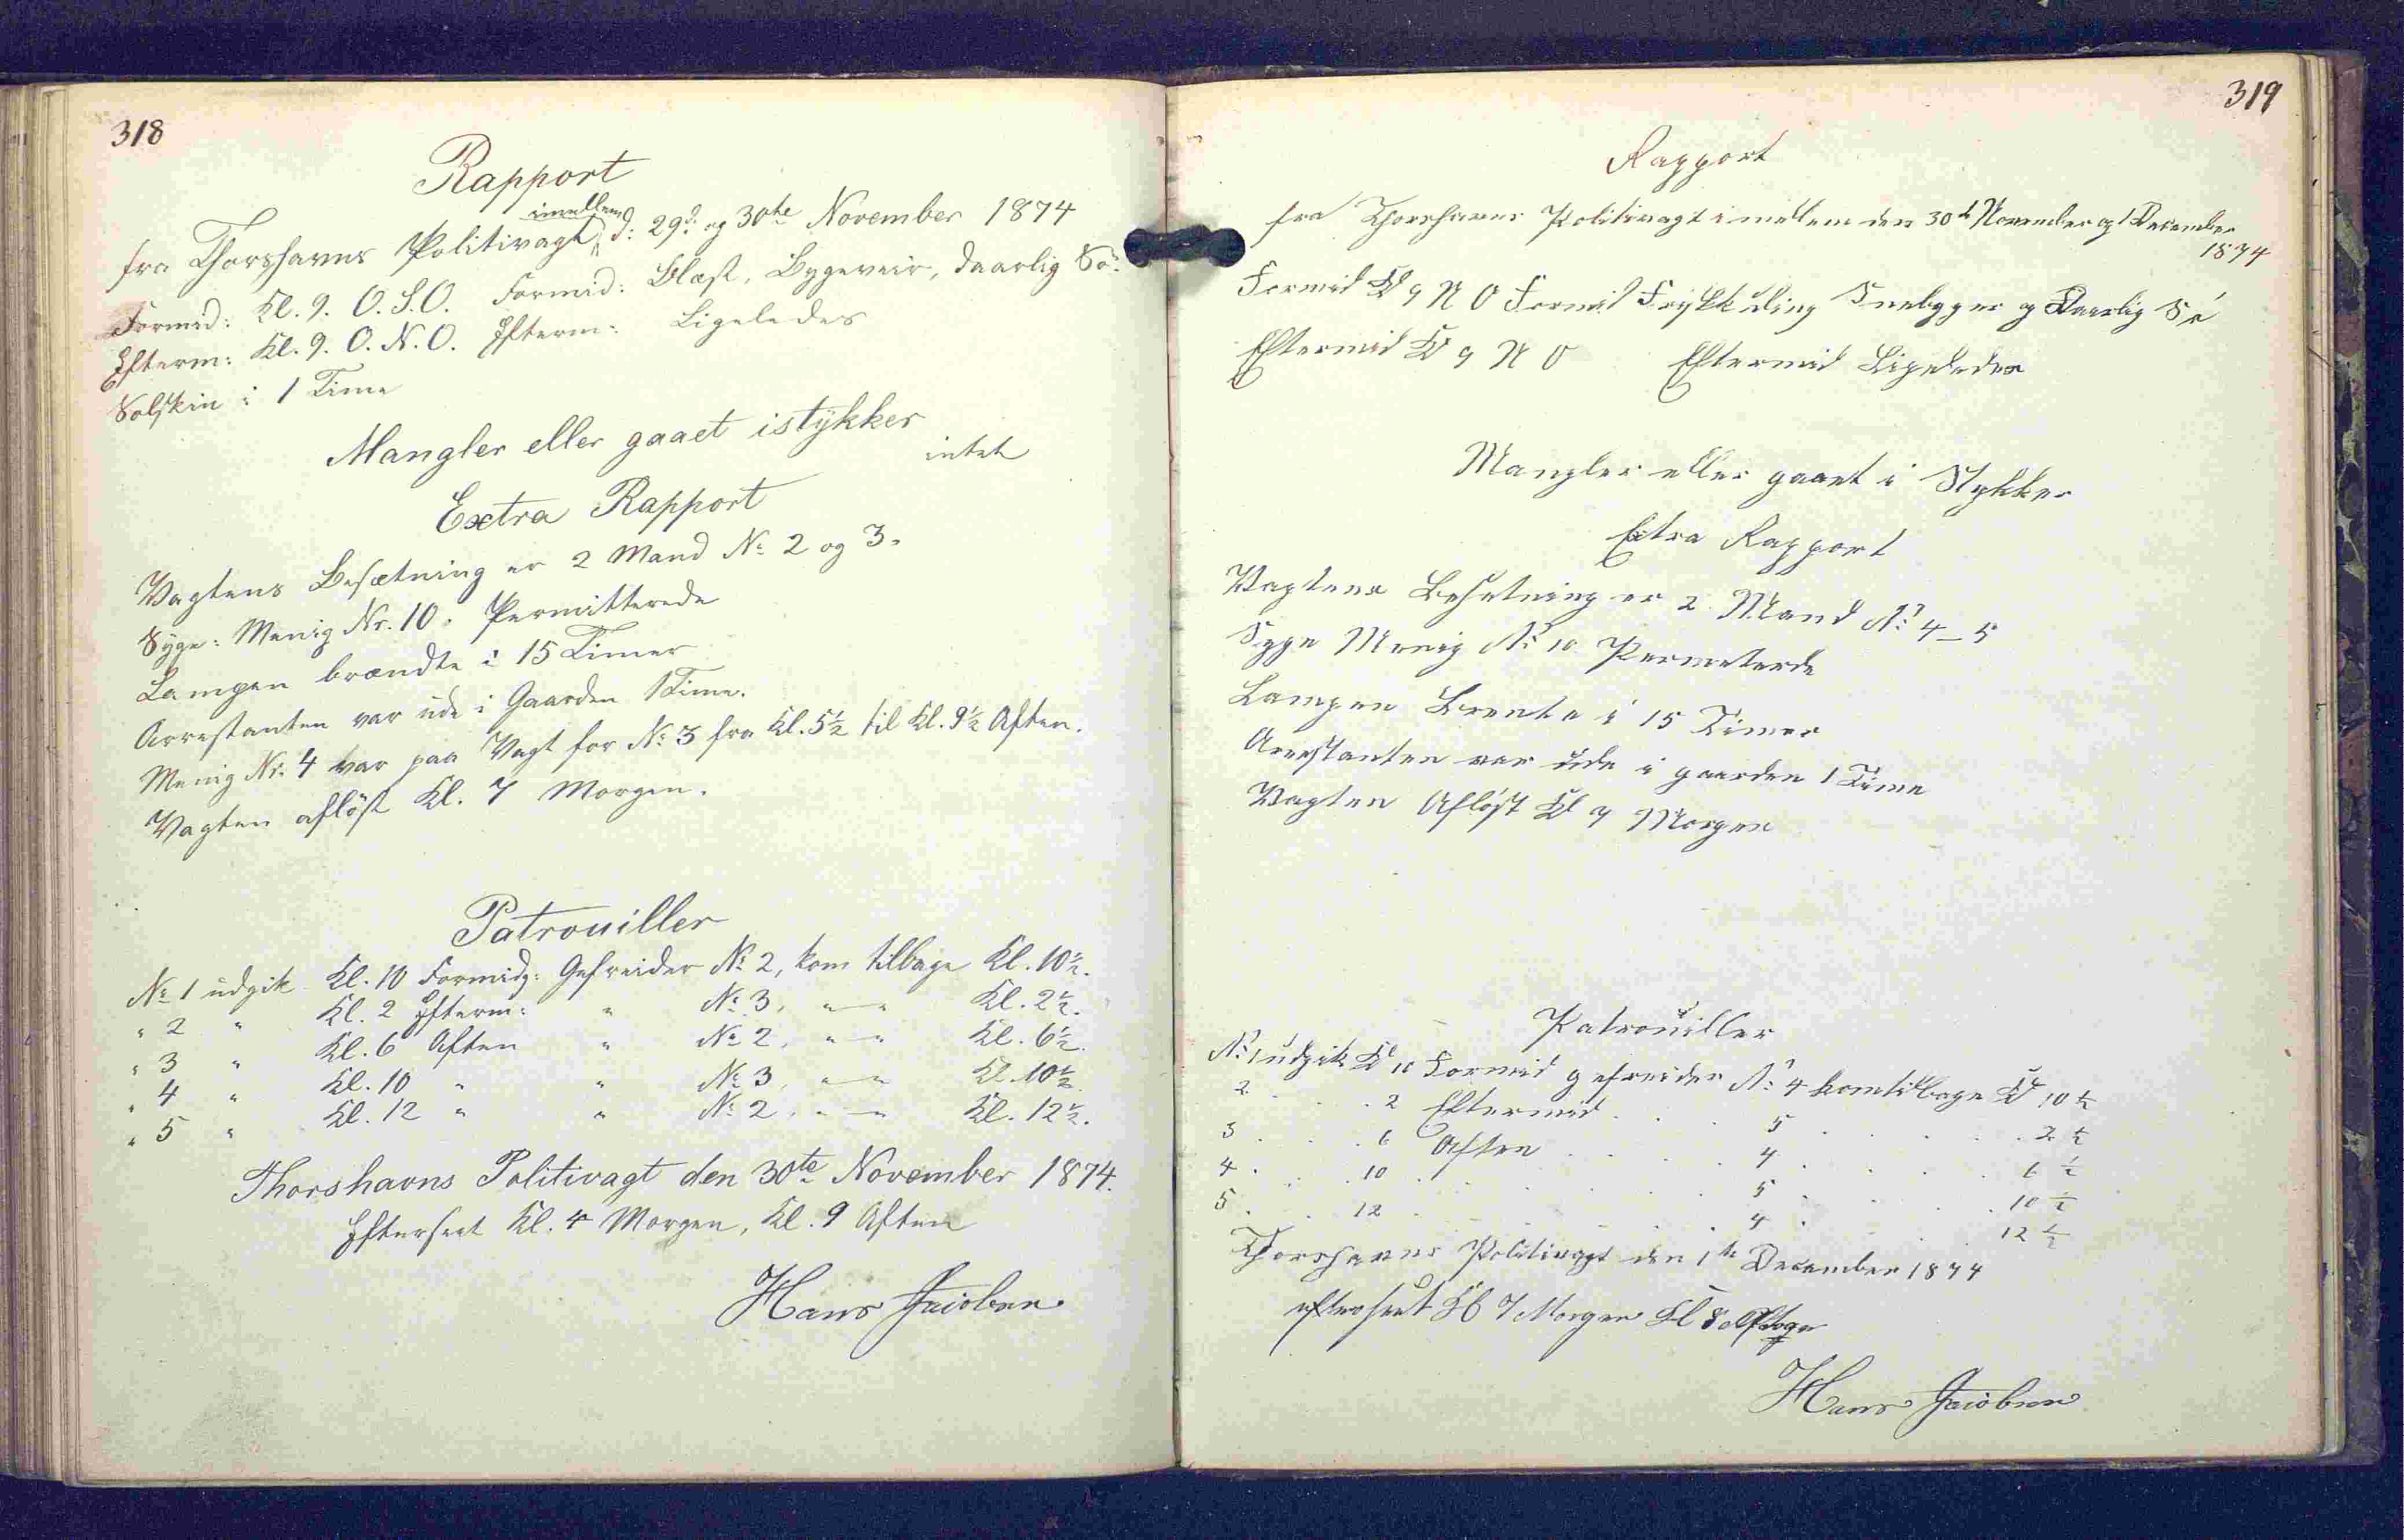 318
Rapport
fra Thorshavns Politivagt imellem d: 29d. og 30te November 1874
Formid: Kl. 9. O.S.O. Formid: Blæst, Bygeveir, daarlig Sö.
Efterm: Kl. 9. O.N.O. Efterm: Ligeledes
Solskin i 1 Time
Mangler eller gaaet istykker
intet
Extra Rapport
Vagtens Besætning er 2 Mand No 2 og 3.
Syge: Menig Nr. 10. Permitterede
Lampen brændte i 15 Timer
Arrestanten var ude i Gaarden 1 Time.
Menig Nr. 4 var paa Vagt for No 3 fra Kl. 5½ til Kl. 9½ Aften.
Vagten aflöst Kl. 7 Morgen.
Patrouiller
No 1 udgik Kl. 10 Formidg: Gefreider No 2, kom tilbage Kl. 10½.
" 2 " Kl. 2 Efterm: " No 3, " — " Kl. 2½.
" 3 " Kl. 6 Aften " No 2, " — " Kl. 6½.
" 4 " Kl. 10 " " No 3, " — " Kl. 10½.
" 5 " Kl. 12 " " No 2, " — " Kl. 12½.
Thorshavns Politivagt den 30te November 1874.
Efterseet Kl. 4 Morgen, Kl. 9 Aften
Hans Jacobsen
319
Rapport
fra Thorshavns Politivagt imellem den 30d November og 1 December
1874
Formid Kl 9 N O Formid Frykkuling Snebyger og Daarlig Sö
Eftermid Kl 9 N O Eftermid Ligeledes
Mangler eller gaaet i Stykker
Extra Rapport
Vagtens Besetning er 2 Mand No 4 – 5
Syge Menig No 10 Permeterde
Lampen Brente i 15 Timer
Arrestanten var ude i gaarden 1 Time
Vagten Aflöst Kl 7 Morgen
Patrouiller
No 1 udgik Kl 10 Formid gefreider No 4 kom tilbage Kl 10 ½
2 . . . 2 Eftermid . . . 5 . . . 2 ½
3 . . . 6 Aften . . . 4 . . . 6 ½
4 . . . 10 . . . 5 . . . 10 ½
5 . . . 12 . . . 4 . . . 12 ½
Thorshavns Politivagt den 1te December 1874
efterseet Kl 7 Morgen Kl 8
Hans Jacobsen